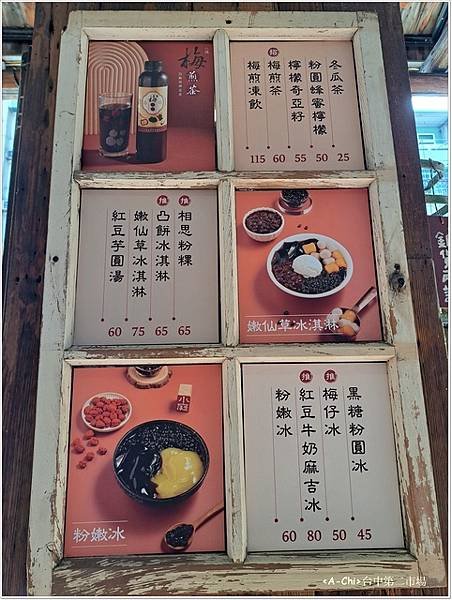 梅
煎茶
推
冬瓜茶 25
粉圓蜂蜜檸檬 50
檸檬奇亞籽 55
梅煎茶 60
梅煎凍飲 115
推
推
相思粉粿 65
凸餅冰淇淋 65
嫩仙草冰淇淋 75
紅豆芋圓湯 60
嫩仙草冰淇淋
粉嫩冰
推
推
黑糖粉圓冰 45
梅仔冰 50
紅豆牛奶麻吉冰 80
粉嫩冰 60
<A-Chi>台中第二市場